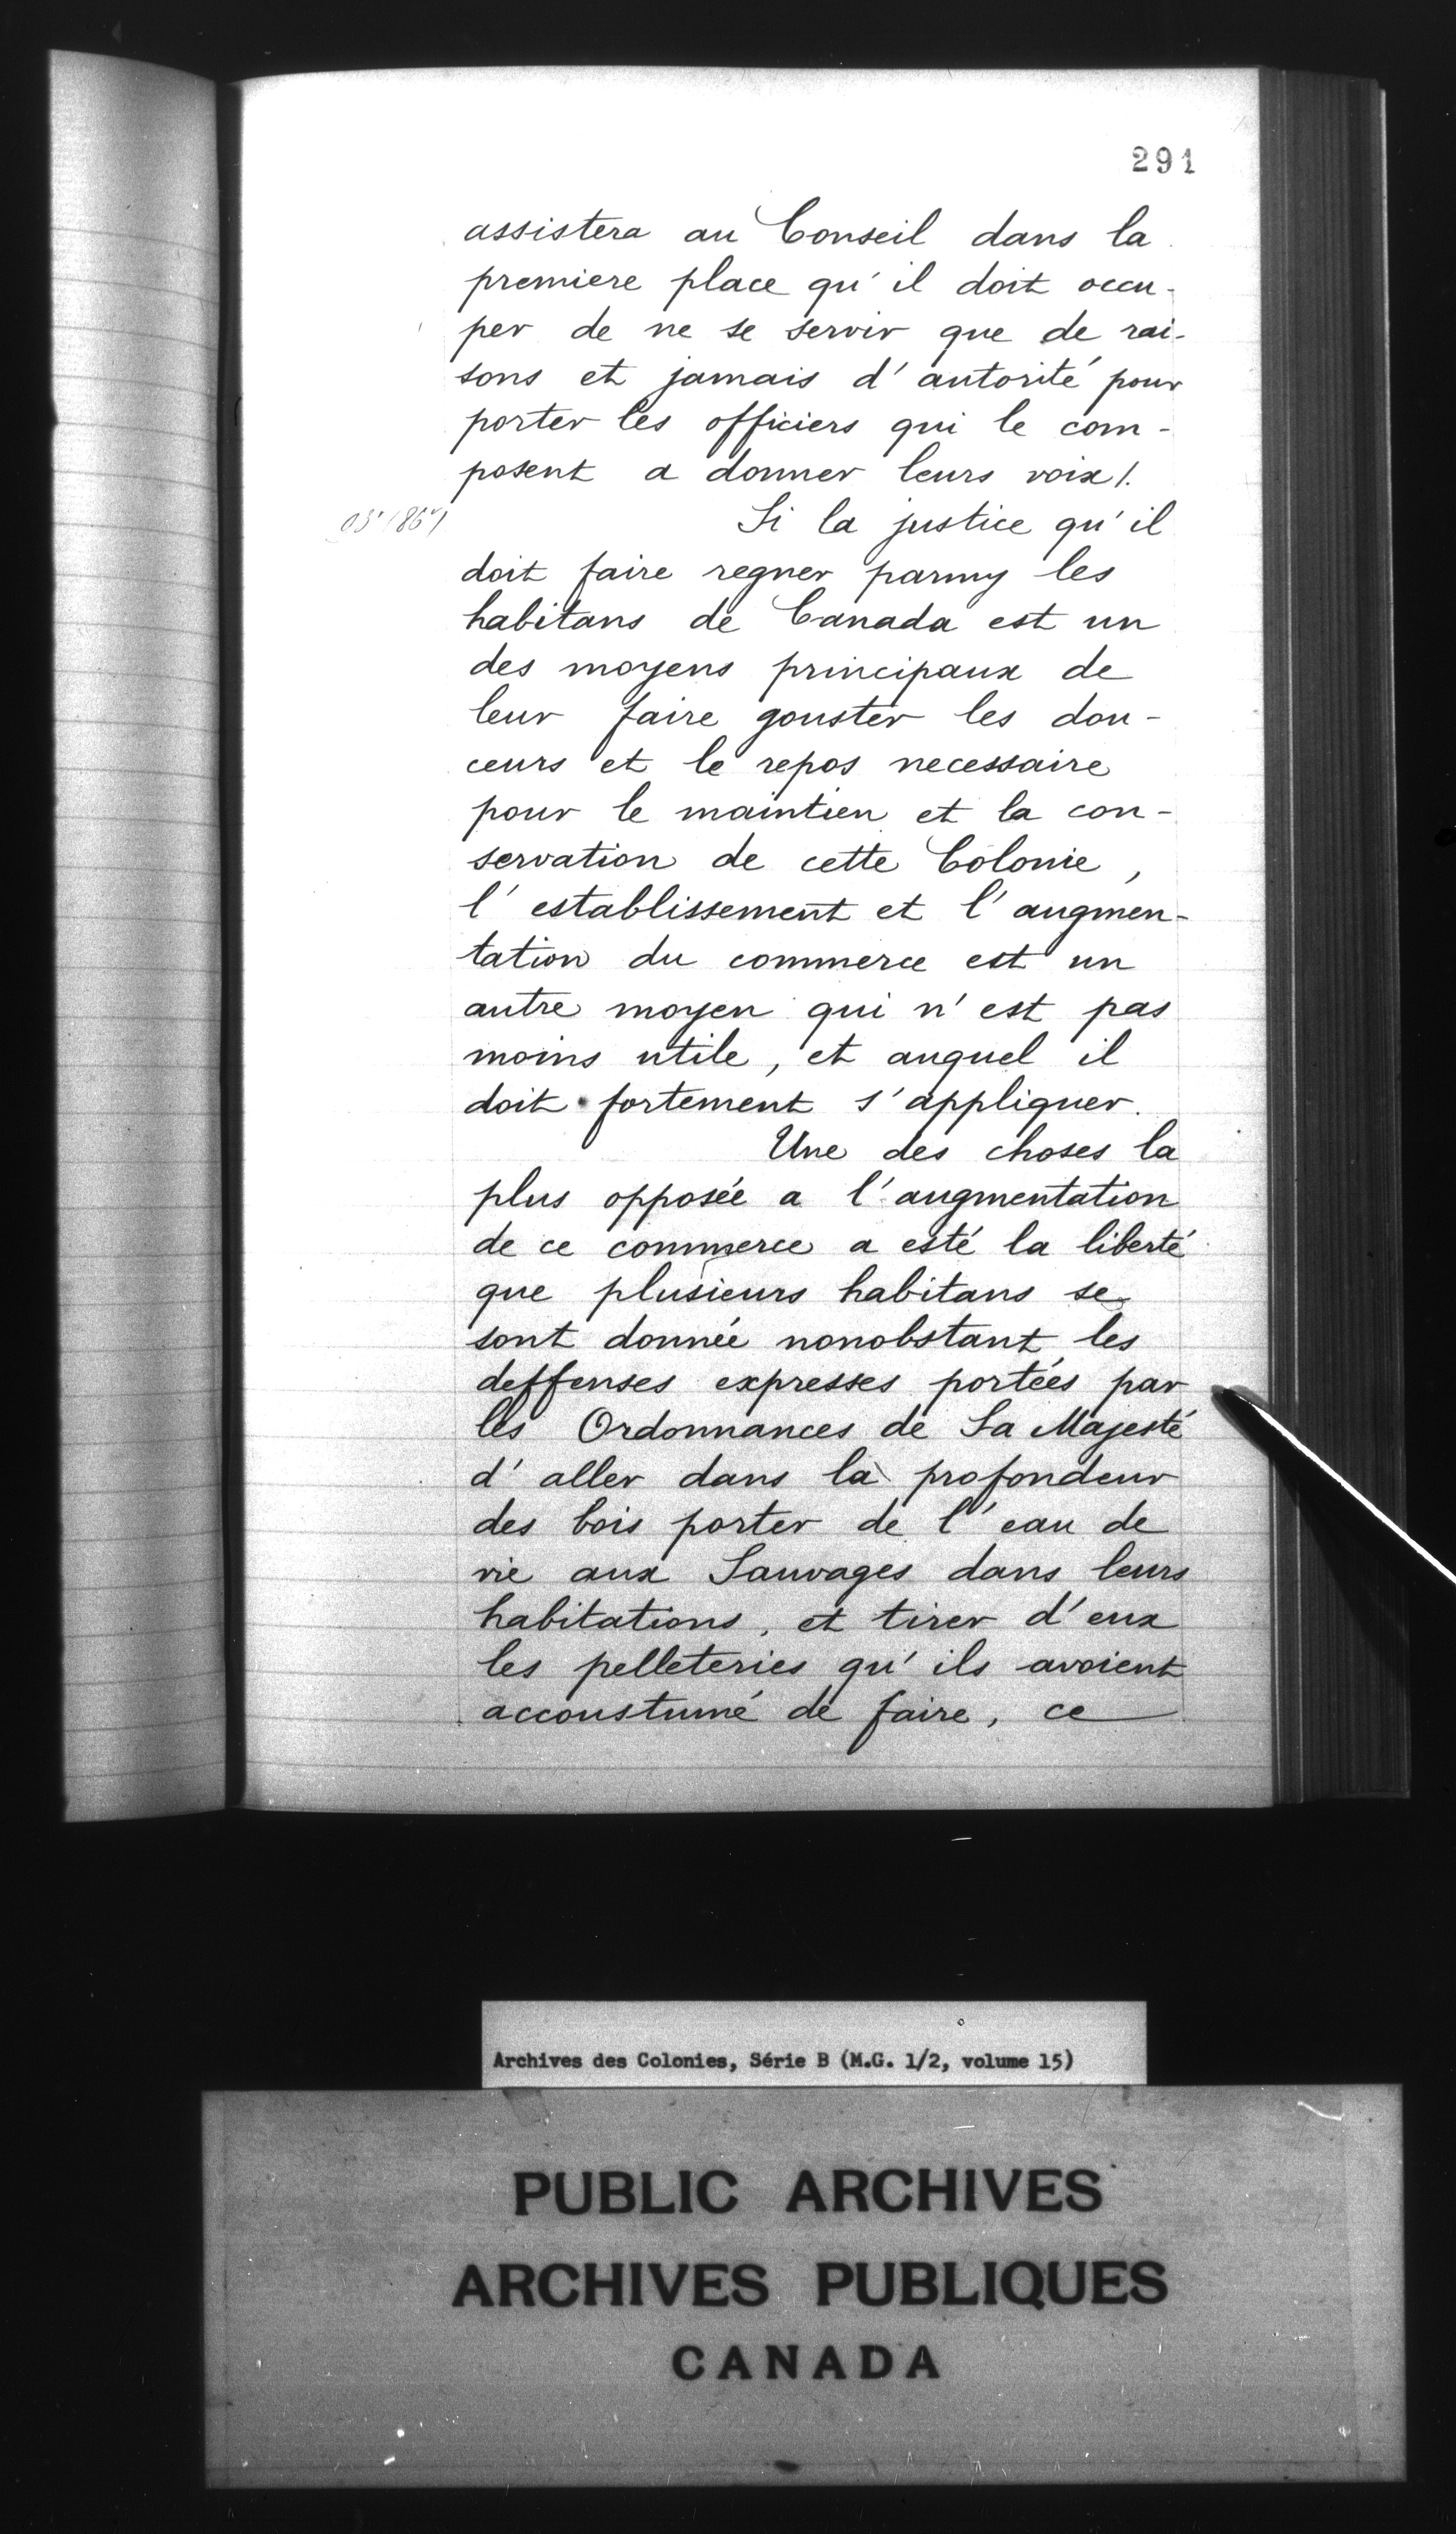 291
assistera au Conseil dans la
premiere place qu'il doit occu-
per de ne se servir que de rai-
sons et jamais d'autorité pour
porter les officiers qui le com-
posent a donner leurs voix/.
Si la justice qu'il
doit faire regner parmy les
habitans de Canada est un
des moyens principaux de
leur faire gouster les dou-
ceurs et le repos necessaire
pour le maintien et la con-
servation de cette Colonie,
l'establissement et l'augmen-
tation du commerce est un
autre moyen qui n'est pas
moins utile, et auquel il
doit fortement s'appliquer.
Une des choses la
plus opposée a l'augmentation
de ce commerce a esté la liberté
que plusieurs habitans se
sont donnée nonobstant les
deffenses expresses portées par
les Ordonnances de Sa Majesté
d'aller dans la profondeur
des bois porter de l'eau de
vie aux Sauvages dans leurs
habitations, et tirer d'eux
les pelleteries qu'ils avoient
accoustumé de faire, ce
Archives des Colonies, Série B (M.G. 1/2, volume 15)
PUBLIC ARCHIVES
ARCHIVES PUBLIQUES
CANADA